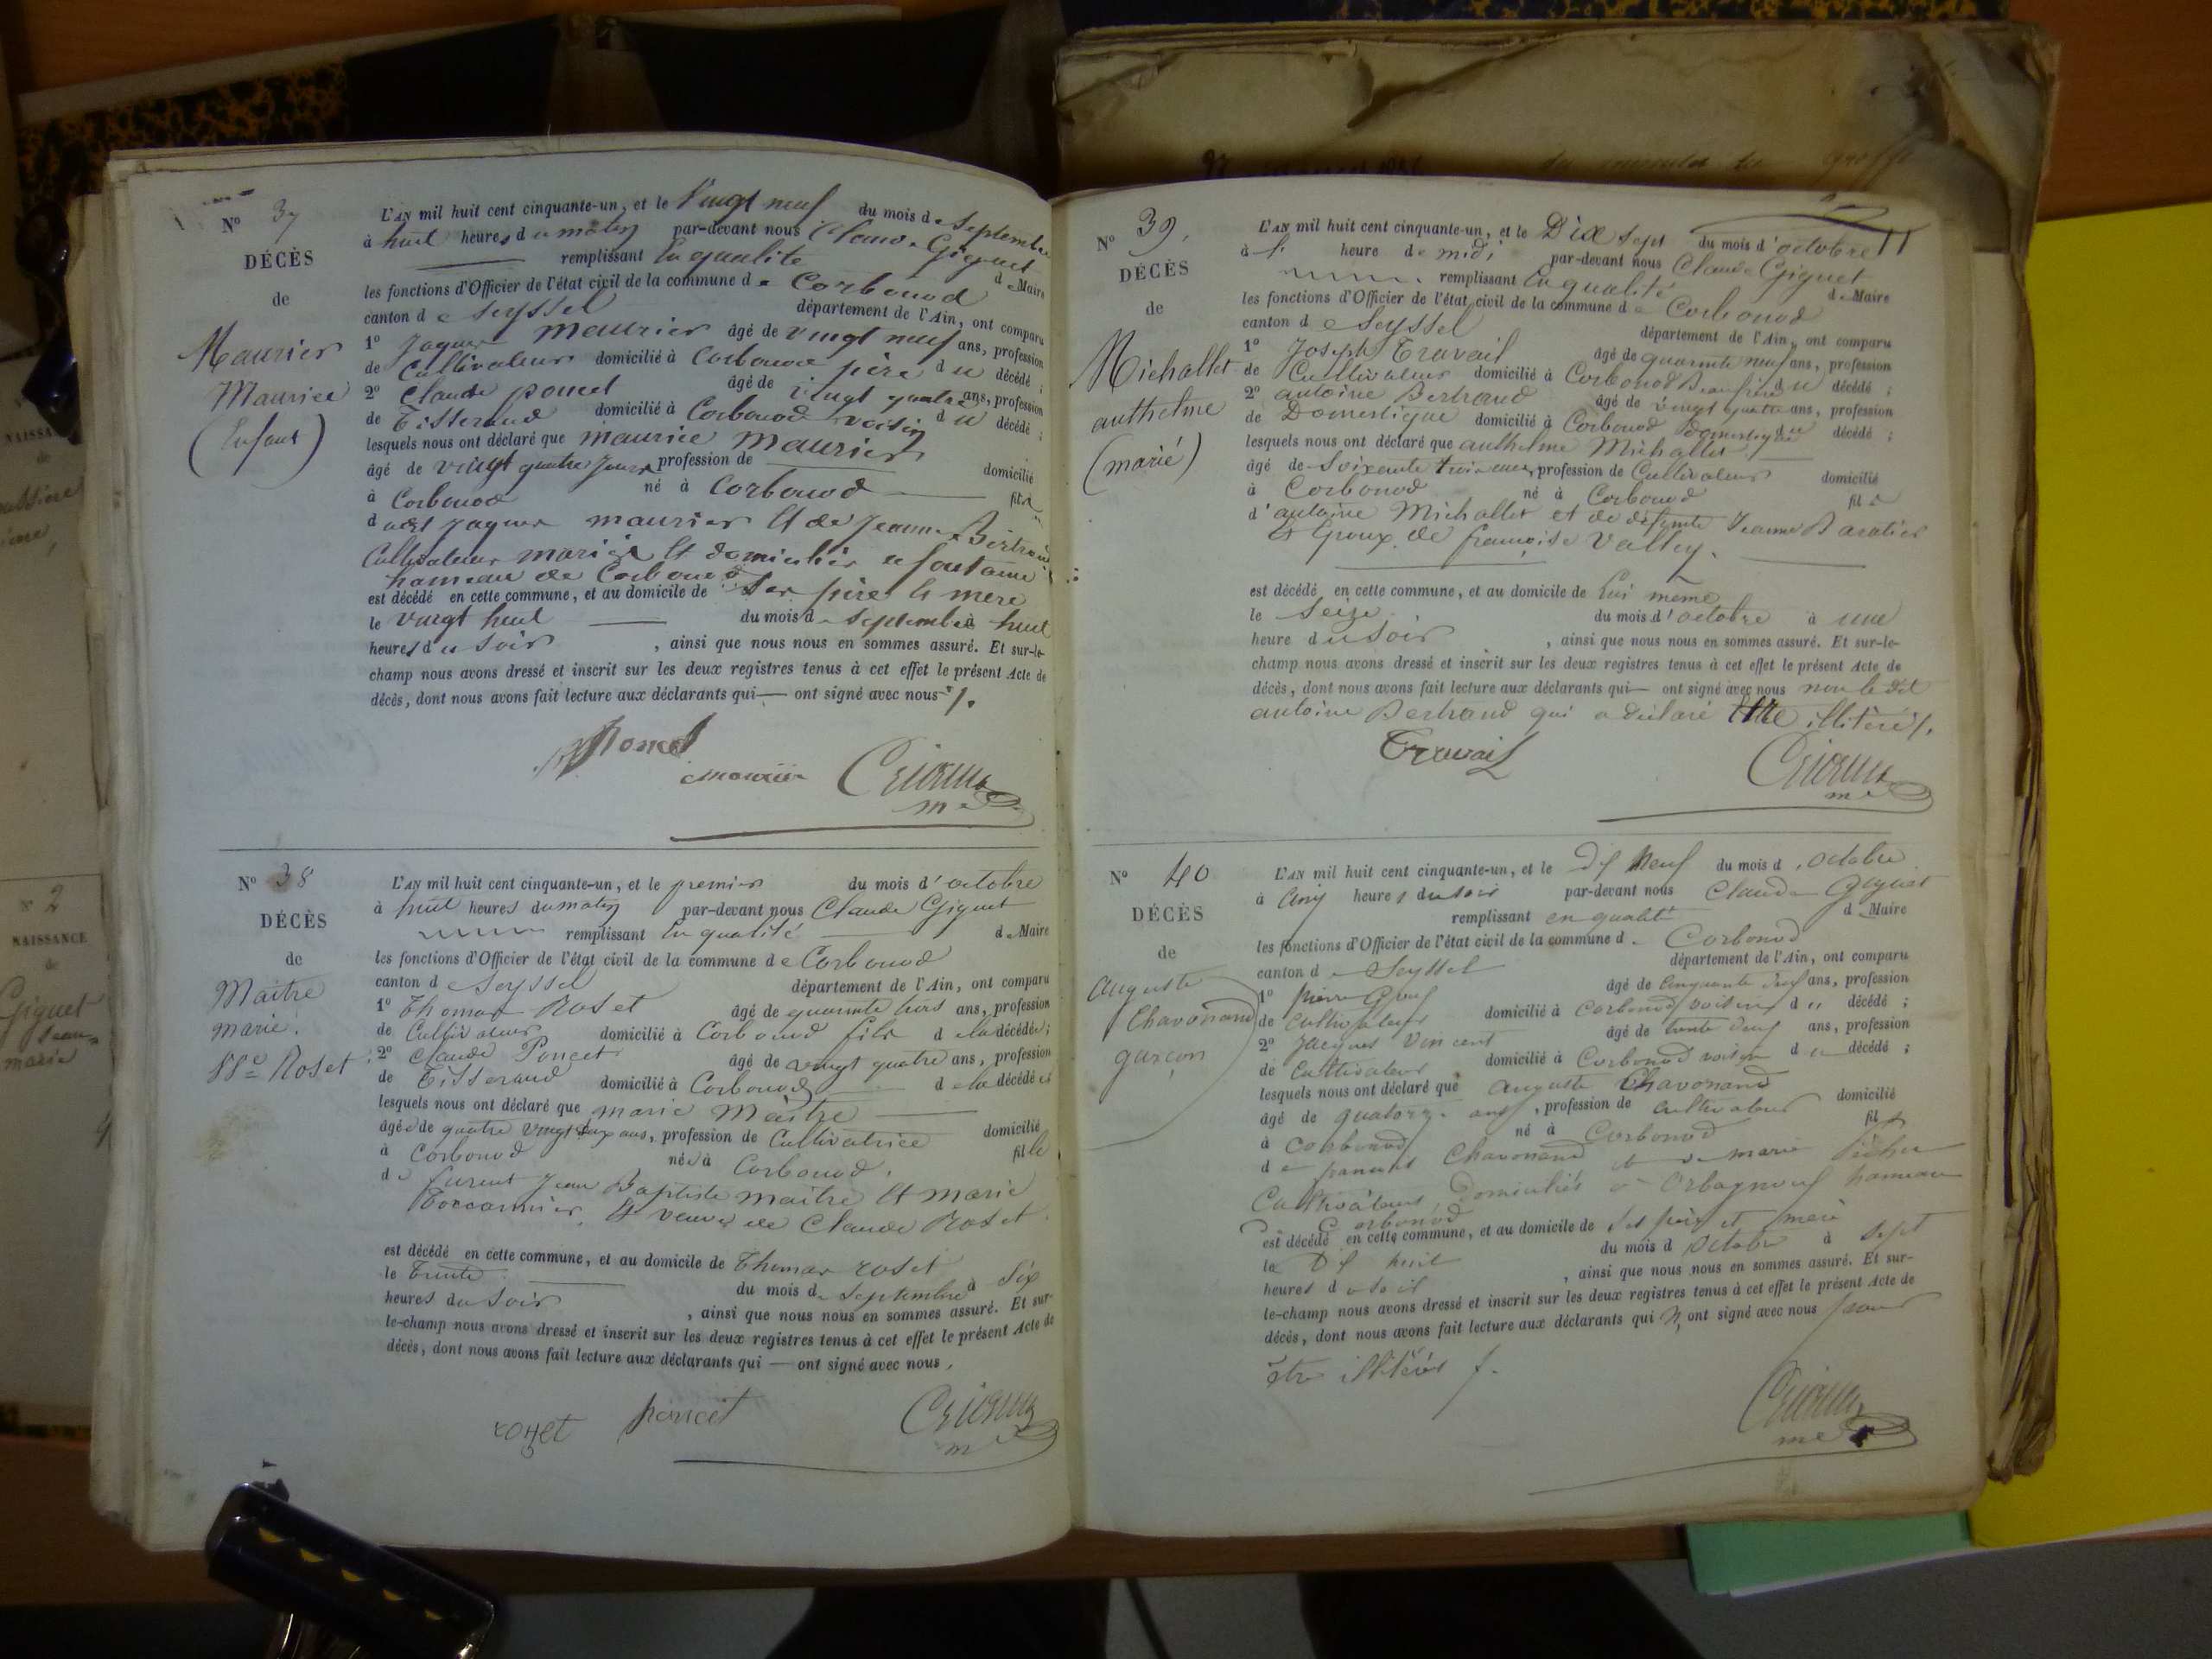 N° 37
DÉCÈS
de
Maurier
Maurice
(Enfant)
L'AN mil huit cent cinquante-un, et le Vingt neuf du mois de Septembre
à huit heures du matin par-devant nous Claude Giguet
remplissant En qualité de Maire
les fonctions d'Officier de l'état civil de la commune de Corbonod
canton de Seyssel département de l'Ain, ont comparu
1° Jaques maurier âgé de vingt neuf ans, profession
de Cultivateur domicilié à Corbonod père du décédé ;
2° Claude poncet âgé de vingt quatre ans, profession
de Tisserand domicilié à Corbonod voisin du décédé ;
lesquels nous ont déclaré que maurice maurier
âgé de vingt quatre jours profession de domicilié
à Corbonod né à Corbonod fils
de Jaques maurier Et de Jeanne Bertrand
Cultivateurs mariés Et domiciliés a fontaine
hameau de Corbonod
est décédé en cette commune, et au domicile de Ses père Et mère
le vingt huit du mois de Septembre à huit
heures du Soir, ainsi que nous nous en sommes assuré. Et sur-le-
champ nous avons dressé et inscrit sur les deux registres tenus à cet effet le présent Acte de
décès, dont nous avons fait lecture aux déclarants qui — ont signé avec nous
Poncet
maurier
N° 38
DÉCÈS
de
Maitre
marie.
Roset
L'AN mil huit cent cinquante-un, et le premier du mois d'octobre
à huit heures du matin par-devant nous Claude Giguet
remplissant En qualité de Maire
les fonctions d'Officier de l'état civil de la commune de Corbonod
canton de Seyssel département de l'Ain, ont comparu
1° Thomas Roset âgé de quarante trois ans, profession
de Cultivateur domicilié à Corbonod fils de la décédée ;
2° Claude Poncet âgé de vingt quatre ans, profession
de Tisserand domicilié à Corbonod de la décédée
lesquels nous ont déclaré que marie Maitre
âgée de quatre vingt ans, profession de Cultivatrice domicilié
à Corbonod née à Corbonod. fille
de furent Jean Baptiste maitre Et marie
Et veuve de Claude Roset
est décédé en cette commune, et au domicile de Thomas Roset
le Trente du mois de Septembre à Six
heures du Soir, ainsi que nous nous en sommes assuré. Et sur-
le-champ nous avons dressé et inscrit sur les deux registres tenus à cet effet le présent Acte de
décès, dont nous avons fait lecture aux déclarants qui — ont signé avec nous.
rozet poncet
N° 39.
DÉCÈS
de
Michallet
anthelme
(marié)
11
L'AN mil huit cent cinquante-un, et le Dix Sept du mois d'octobre
à heure de midi par-devant nous Claude Giguet
remplissant En qualité de Maire
les fonctions d'Officier de l'état civil de la commune de Corbonod
canton de Seyssel département de l'Ain, ont comparu
1° Joseph Travail âgé de quarante neuf ans, profession
de Cultivateur domicilié à Corbonod Beaufrère du décédé ;
2° antoine Bertrand âgé de vingt quatre ans, profession
de Domestique domicilié à Corbonod domestique du décédé ;
lesquels nous ont déclaré que anthelme Michallet
âgé de Soixante trois ans, profession de Cultivateur domicilié
à Corbonod né à Corbonod fils
d'antoine Michallet et de défunte Jeanne Baratier
Et Epoux de françoise Vallet.
est décédé en cette commune, et au domicile de Lui même
le Seize du mois d'octobre à une
heure du Soir, ainsi que nous nous en sommes assuré. Et sur-le-
champ nous avons dressé et inscrit sur les deux registres tenus à cet effet le présent Acte de
décès, dont nous avons fait lecture aux déclarants qui — ont signé avec nous non le dit
antoine Bertrand qui a déclaré Etre illitéré
Travail
N° 40
DÉCÈS
de
Auguste
Chavonand
garçon
L'AN mil huit cent cinquante-un, et le Dif neuf du mois d'octobre
à Cinq heures du soir par-devant nous Claude Giguet
remplissant en qualité de Maire
les fonctions d'Officier de l'état civil de la commune de Corbonod
canton de Seyssel département de l'Ain, ont comparu
1° Pierre âgé de Cinquante ans, profession
de Cultivateur domicilié à Corbonod voisin du décédé ;
2° Jacques Vincent âgé de trente ans, profession
de Cultivateur domicilié à Corbonod voisin du décédé ;
lesquels nous ont déclaré que Auguste Chavonand
âgé de quatorze ans, profession de Cultivateur domicilié
à Corbonod né à Corbonod fils
de Chavonand et de marie
Cultivateurs Domiciliés à Orbagnoux hameau
Corbonod
est décédé en cette commune, et au domicile de Ses père et mère
le Dif huit du mois d octobre à sept
heures du soir, ainsi que nous nous en sommes assuré. Et sur-
le-champ nous avons dressé et inscrit sur les deux registres tenus à cet effet le présent Acte de
décès, dont nous avons fait lecture aux déclarants qui n'ont signé avec nous pour
être illitérés
NAISSANCE
de
2
NAISSANCE
de
Giguet
Jean-
marie